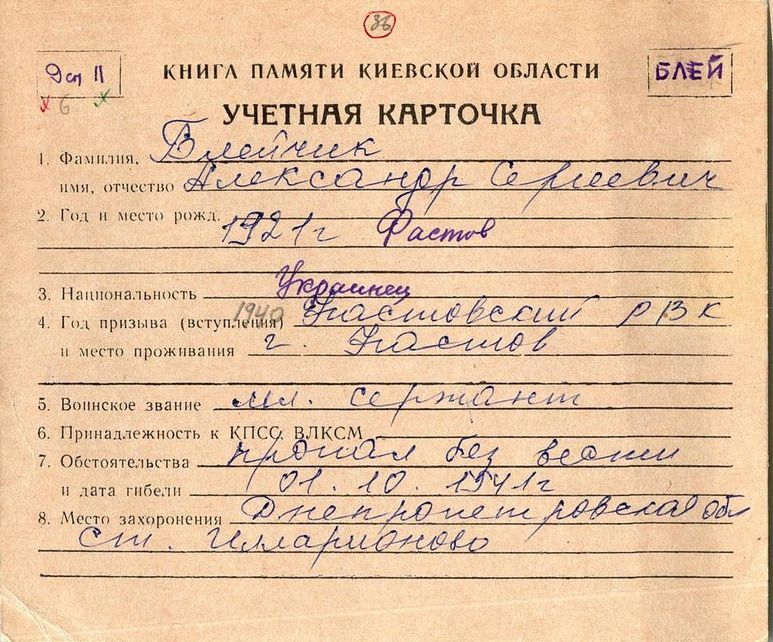 36
Доп 11
КНИГА ПАМЯТИ КИЕВСКОЙ ОБЛАСТИ
БЛЕЙ
6
УЧЕТНАЯ КАРТОЧКА
1. Фамилия, Блейчик
имя, отчество Александр Сергеевич
2. Год и место рожд. 1921 г Фастов
3. Национальность Украинец
4. Год призыва (вступления) 1940 Фастовский РВК
и место проживания г. Фастов
5. Воинское звание мл. сержант
6. Принадлежность к КПСС, ВЛКСМ
7. Обстоятельства пропал без вести
и дата гибели 01.10.1941г
8. Место захоронения Днепропетровская обл
ст. Илларионово